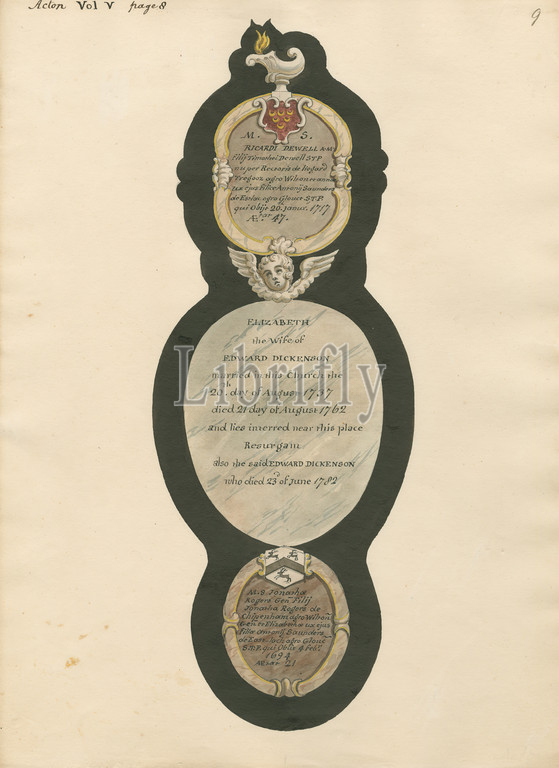 Acton Vol V page 8
9
M. S.
RICARDI DEWELL A.M
filij Timothei Dewell S.T.P
nuper Rectoris de Lediard
Tregooz agro Wilton
ux ejus Filiæ Antonij Saunders
de agro Glouc S.T.P.
qui Obijt 20. Janur. 1717
Ætat 47.
ELIZABETH
the Wife of
EDWARD DICKENSON
married in this Church the
20th day of August 1737
died 21 day of August 1762
and lies interred near this place
Resurgam
also the said EDWARD DICKENSON
who died 23d of June 1782
M.S Jonathæ
Rogers Gen Filij
Jonathæ Rogers de
Chipenham agro Wilton
Gen et Elizabethæ ux ejus
filiæ Antonij Saunders
de agro Glouc
S.T.P. qui Obijt 4 Feb.
1694
Ætat 21
Librifly